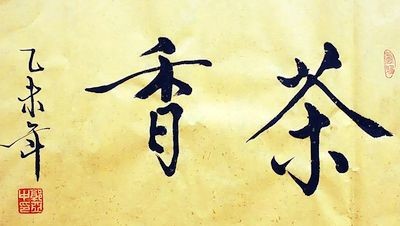 茶香
乙未年